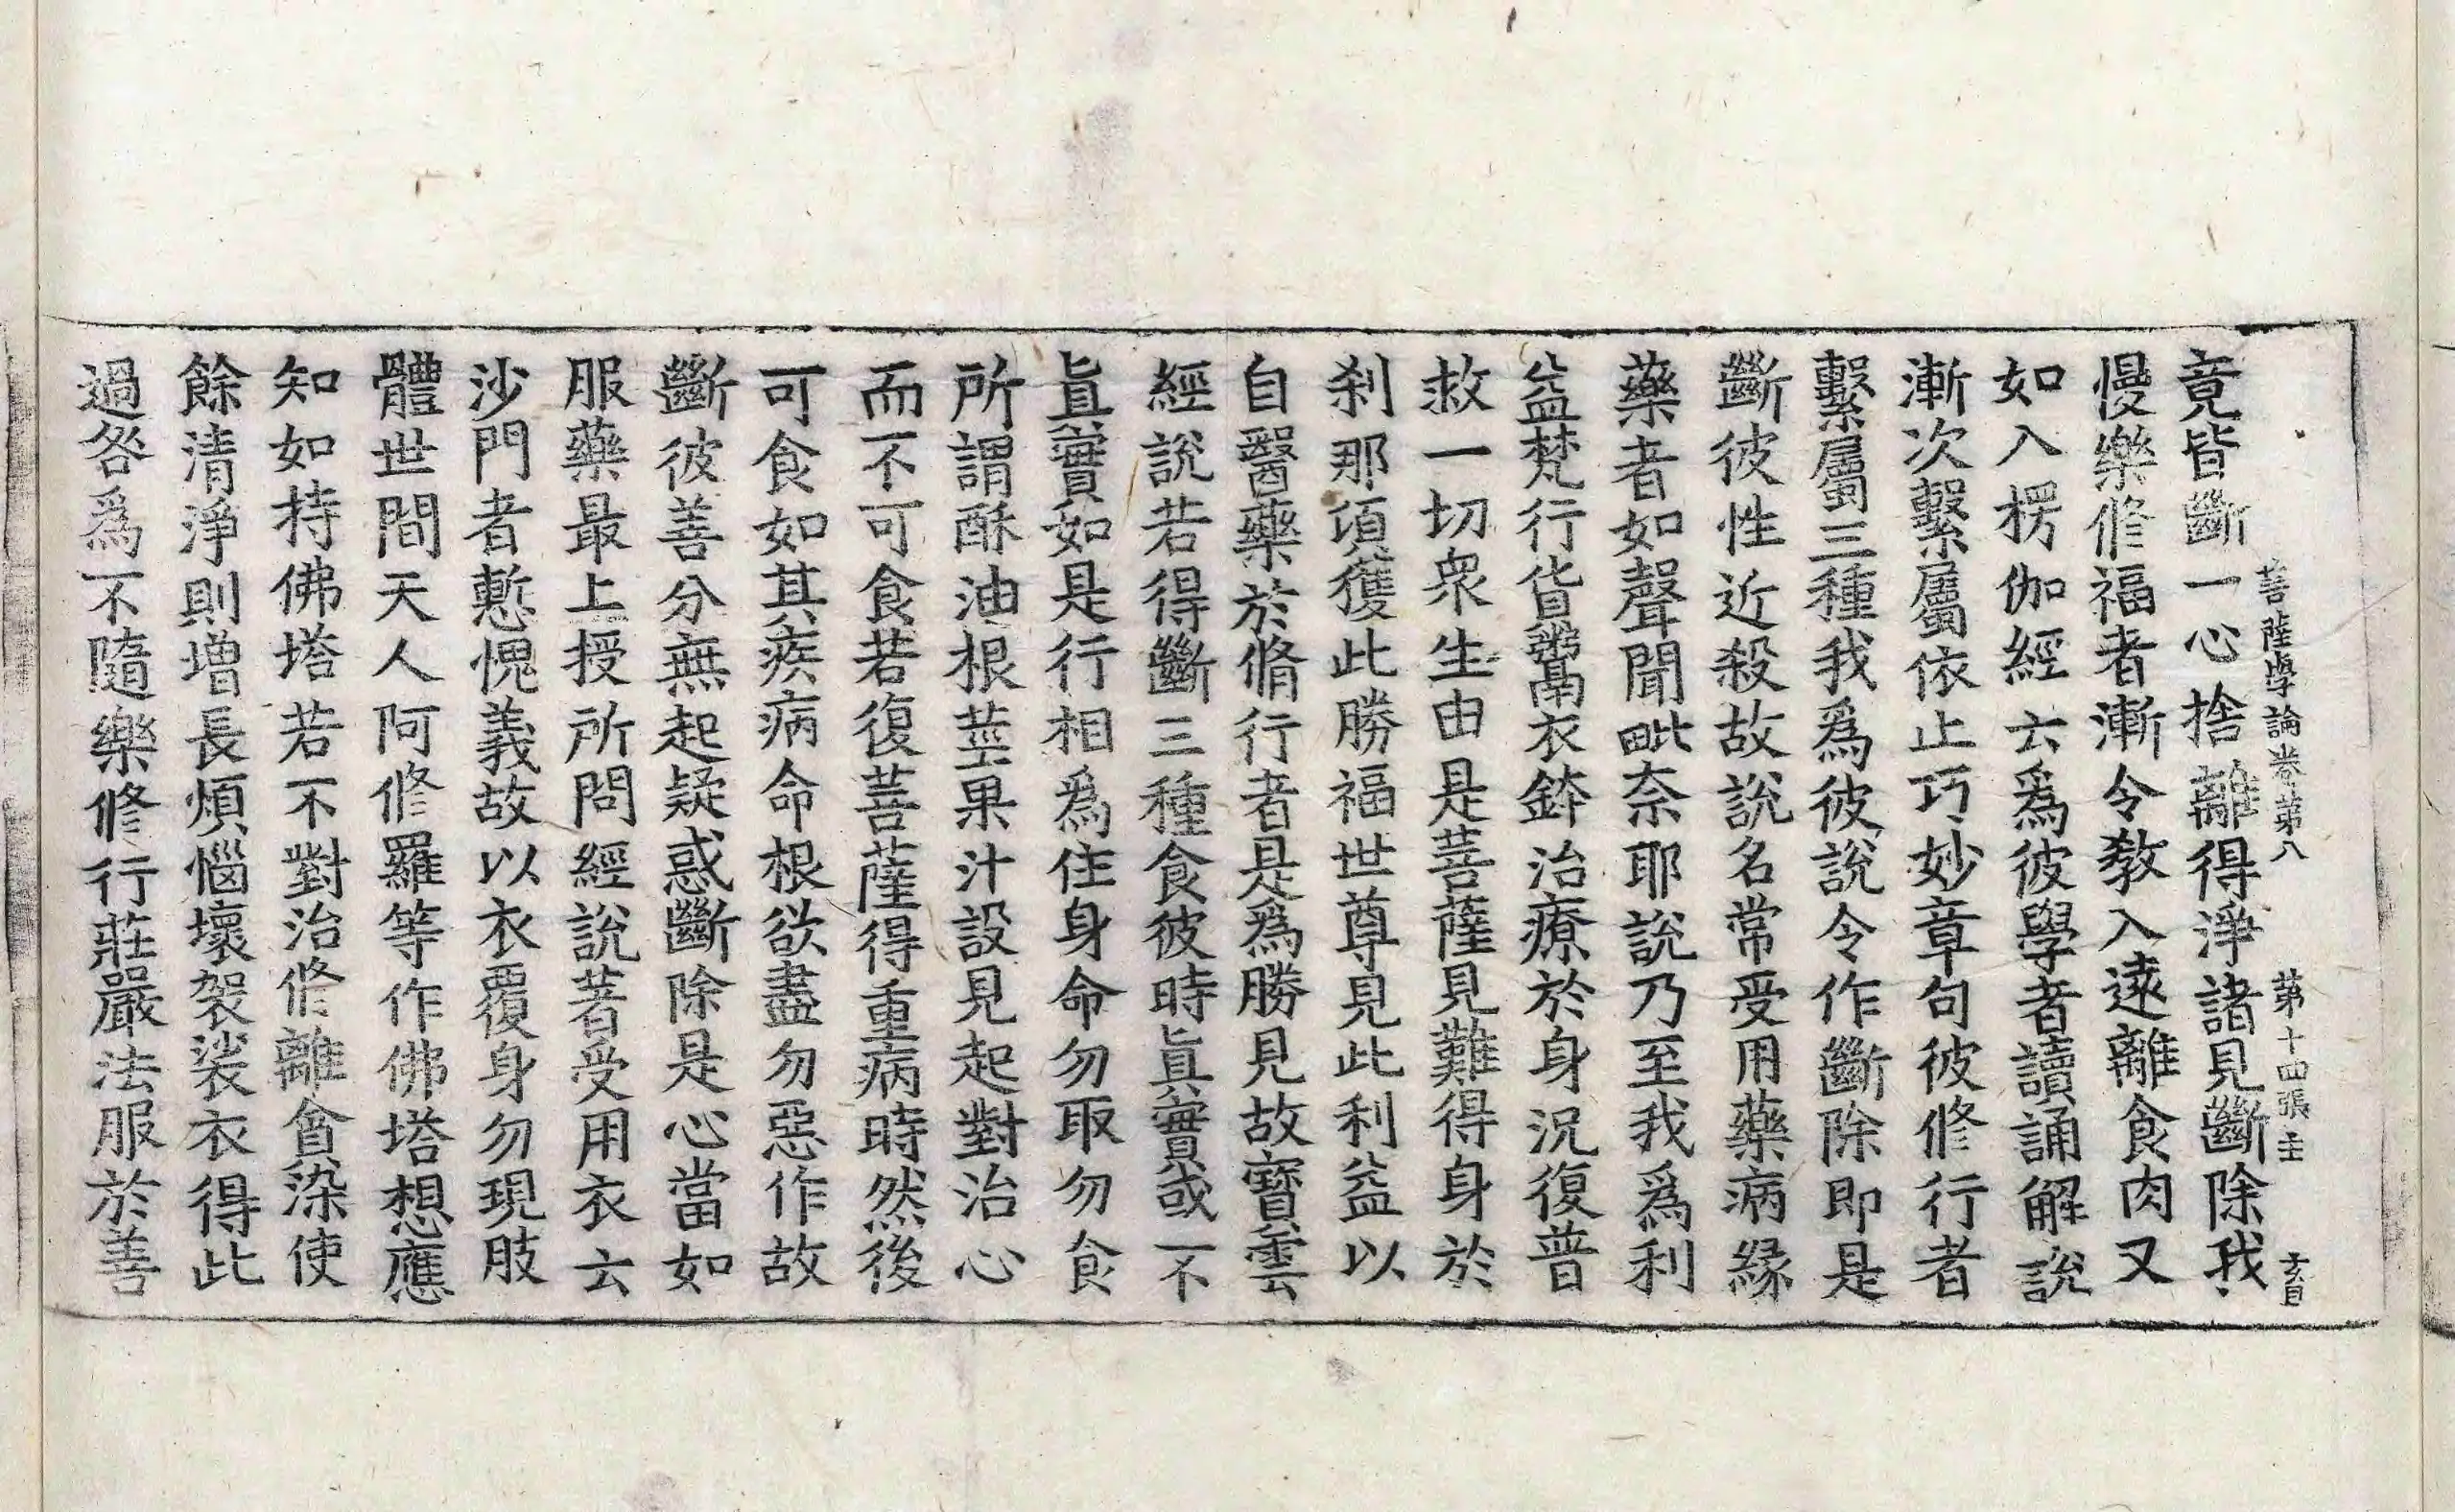 菩薩學論卷第八 第十四張 主
竟皆斷一心捨離得淨諸見斷除我
慢樂修福者漸令教入遠離食肉又
如入楞伽經云爲彼學者讀誦解說
漸次繫屬依止巧妙章句彼修行者
繫屬三種我爲彼說令作斷除即是
斷彼性近殺故說名常受用藥病緣
藥者如聲聞毗奈耶說乃至我爲利
益梵行貨鬻衣鉢治療於身況復普
救一切衆生由是菩薩見難得身於
刹那頃獲此勝福世尊見此利益以
自醫藥於脩行者是爲勝見故寶雲
經說若得斷三種食彼時眞實或不
眞實如是行相爲住身命勿取勿食
所謂酥油根莖果汁設見起對治心
而不可食若復菩薩得重病時然後
可食如其疾病命根欲盡勿惡作故
斷彼善分無起疑惑斷除是心當如
服藥最上授所問經說著受用衣云
沙門者慙愧義故以衣覆身勿現肢
體世間天人阿修羅等作佛塔想應
知如持佛塔若不對治修離貪染使
餘清淨則增長煩惱壞袈裟衣得此
過咎爲不隨樂修行莊嚴法服於善